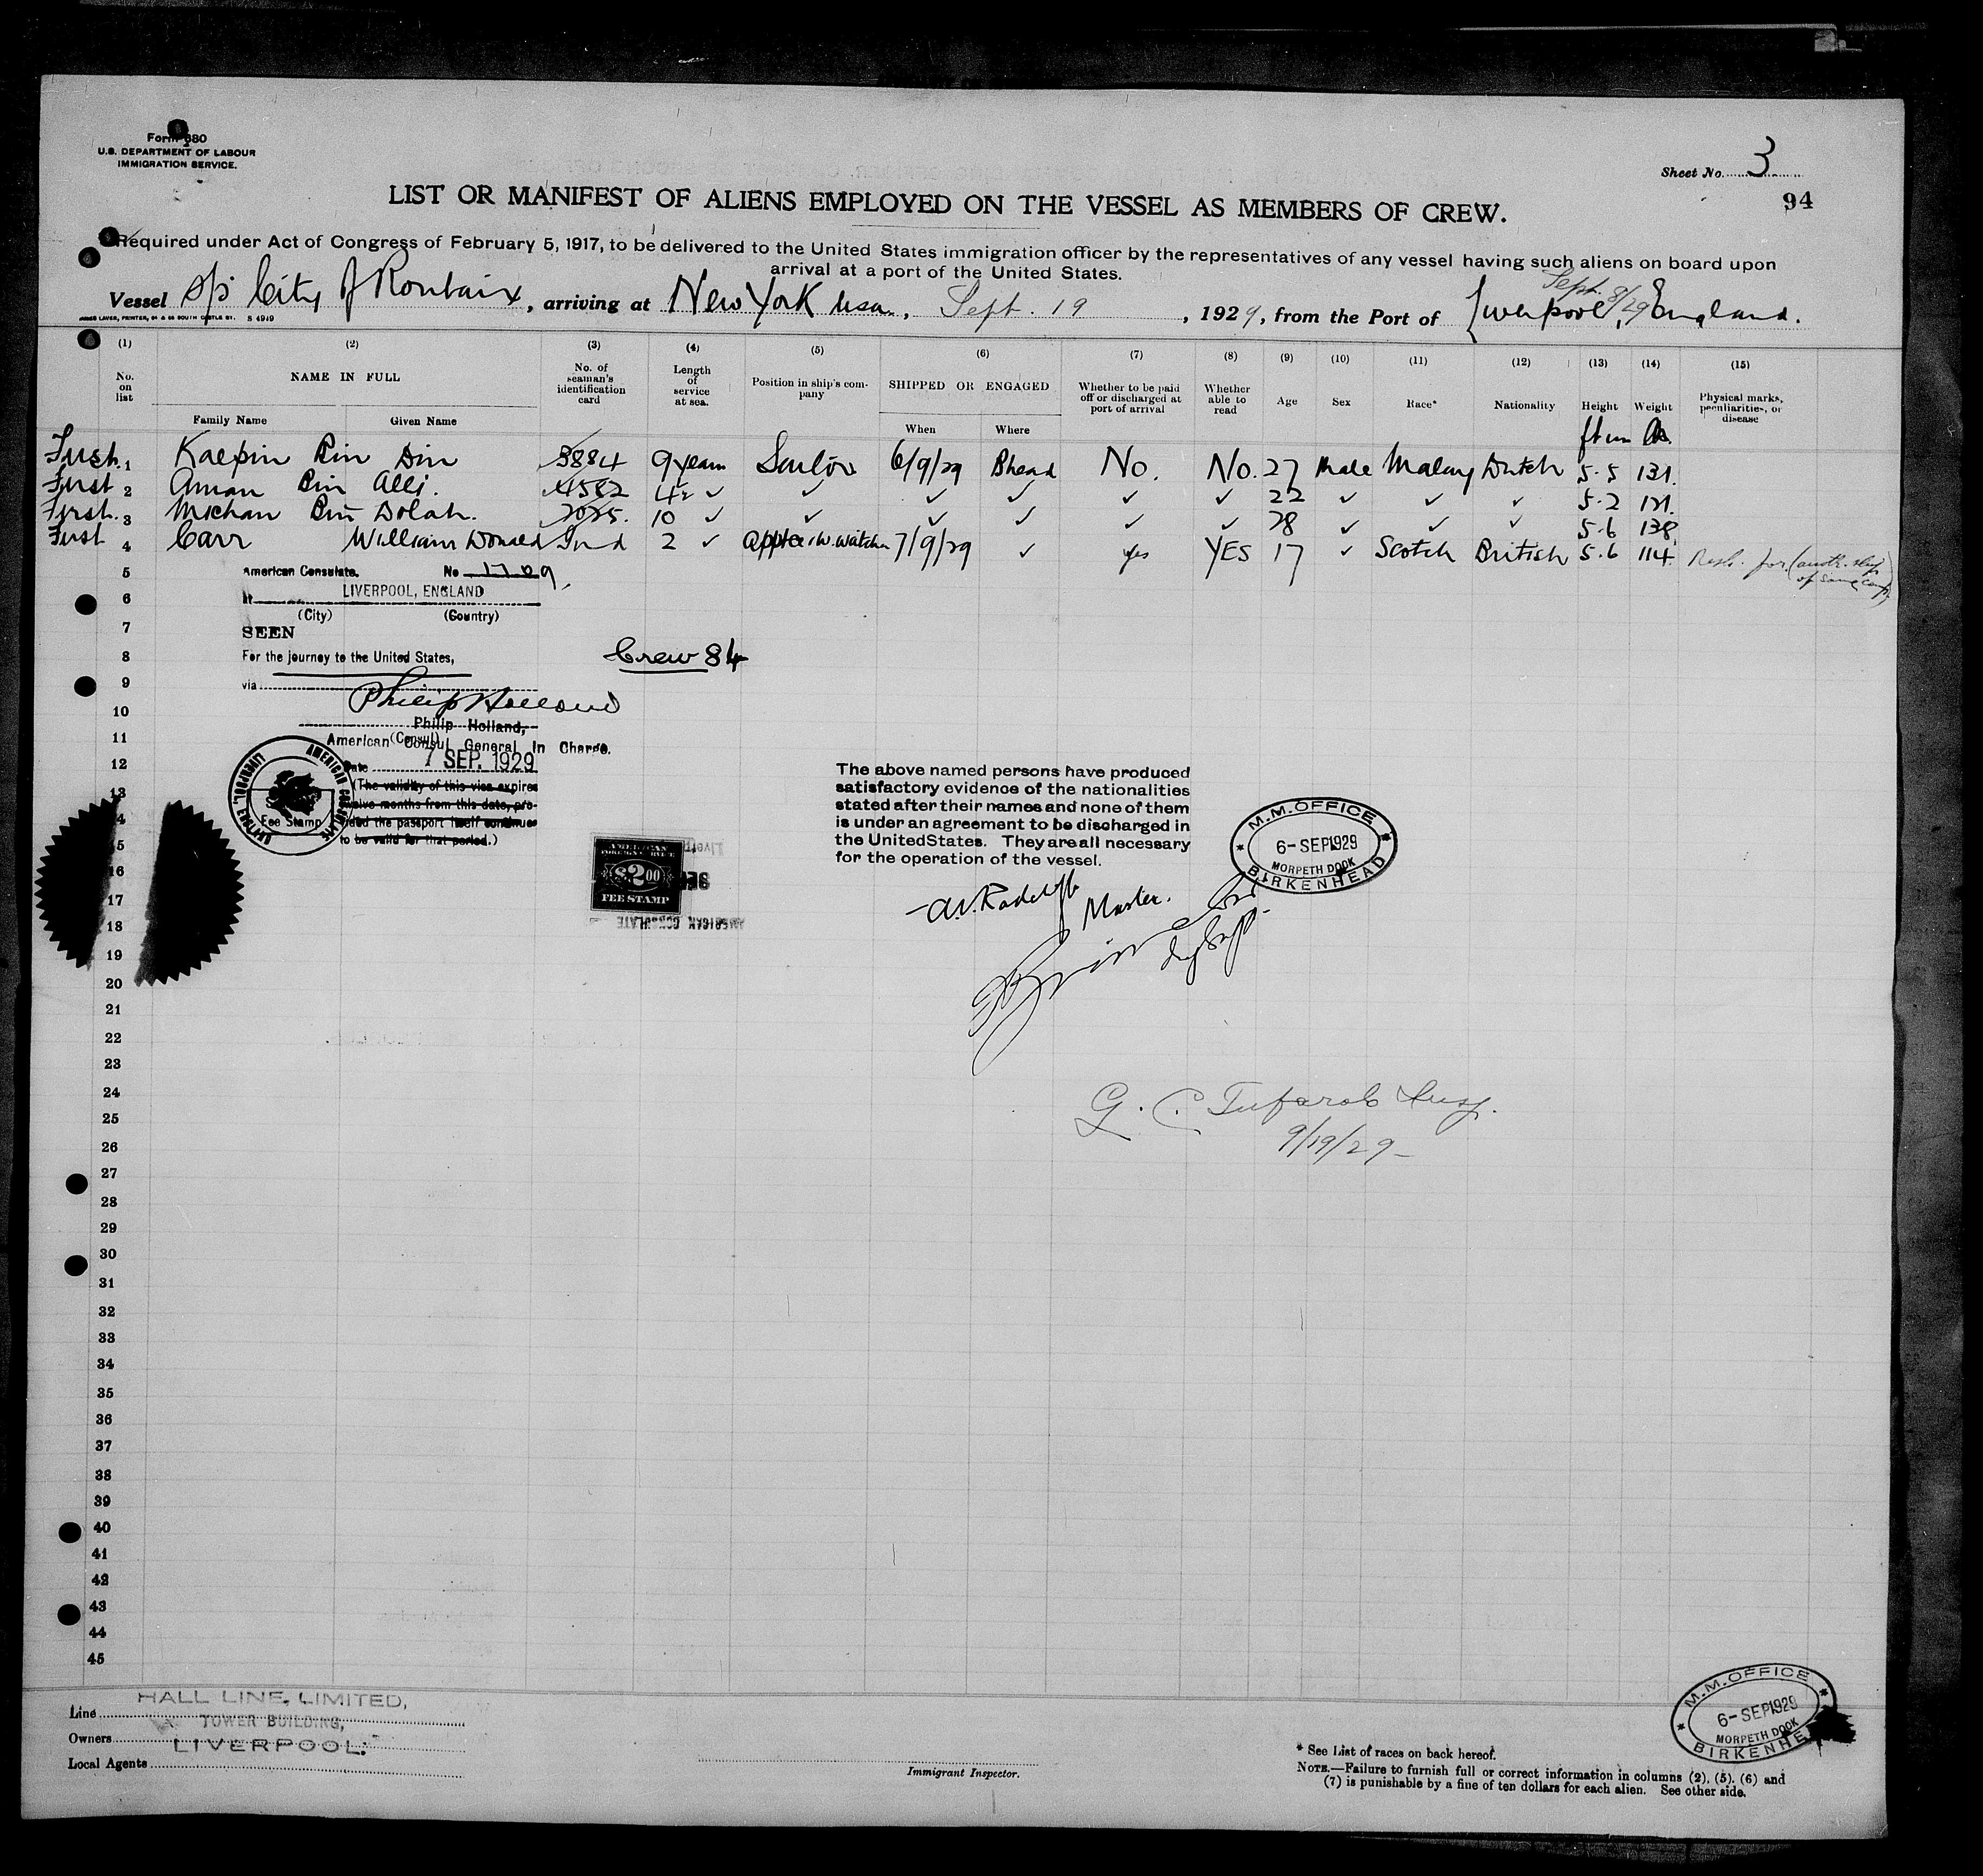 Form 680
U.S. DEPARTMENT OF LABOUR
IMMIGRATION SERVICE.
Sheet No. 3
94
LIST OR MANIFEST OF ALIENS EMPLOYED ON THE VESSEL AS MEMBERS OF CREW.
Required under Act of Congress of February 5, 1917, to be delivered to the United States immigration officer by the representatives of any vessel having such aliens on board upon
arrival at a port of the United States.
Sept. 8/29
Vessel S/S City of Roubaix, arriving at New York usa, Sept. 19, 1929, from the Port of Liverpool, England.
JAMES LAVER, PRINTER, SOUTH CASTLE ST. S 4949
(1) (2) (3) (4) (5) (6) (7) (8) (9) (10) (11) (12) (13) (14) (15)
No. on list NAME IN FULL No. of seaman's identification card Length of service at sea. Position in ship's company SHIPPED OR ENGAGED Whether to be paid off or discharged at port of arrival Whether able to read Age Sex Race* Nationality Height Weight Physical marks, peculiarities, or disease
Family Name Given Name When Where ft in
First 1 Kaepin Bin Din 3884 9 years Sailor 6/9/29 Bhead No. No. 27 Male Malay Dutch 5-5 131.
First 2 Aman Bin Alli. 4582 4½ ✓ ✓ ✓ ✓ ✓ ✓ 22 ✓ ✓ ✓ 5-2 121.
First. 3 Michan Bin Dolah. 7025. 10 ✓ ✓ ✓ ✓ ✓ ✓ 28 ✓ ✓ ✓ 5.6 138
First 4 Carr William Donald Ind 2 ✓ 7/9/29 ✓ yes YES 17 ✓ Scotch British 5.6 114. Resh. for (anoth. ship
of same comp.)
5
6
7
8
9
10
11
12
13
14
15
16
17
18
19
20
21
22
23
24
25
26
27
28
29
30
31
32
33
34
35
36
37
38
39
40
41
42
43
44
45
American Consulate. No 1709
At LIVERPOOL, ENGLAND
(City) (Country)
SEEN
For the journey to the United States,
via
Crew 84
Philip Holland
Philip Holland,
(Consul)
American Consul General In Charge.
Date 7 SEP. 1929
(The validity of this visa expires
twelve months from this date, provided
the passport itself continues
to be valid for that period.)
Fee Stamp
AMERICAN CONSULATE LIVERPOOL, ENGLAND
AMERICAN
FOREIGN SERVICE
$2.00
FEE STAMP
AMERICAN CONSULATE
The above named persons have produced
satisfactory evidence of the nationalities
stated after their names and none of them
is under an agreement to be discharged in
the United States. They are all necessary
for the operation of the vessel.
M.M. OFFICE
6-SEP 1929
MORPETH DOCK
BIRKENHEAD
Master.
G. C. Tufarolo Insp.
9/19/29
Line
HALL LINE, LIMITED,
TOWER BUILDING,
Owners
LIVERPOOL.
Local Agents
Immigrant Inspector.
* See List of races on back hereof.
NOTE.—Failure to furnish full or correct information in columns (2), (5), (6) and
(7) is punishable by a fine of ten dollars for each alien. See other side.
M.M. OFFICE
6-SEP 1929
MORPETH DOCK
BIRKENHEAD